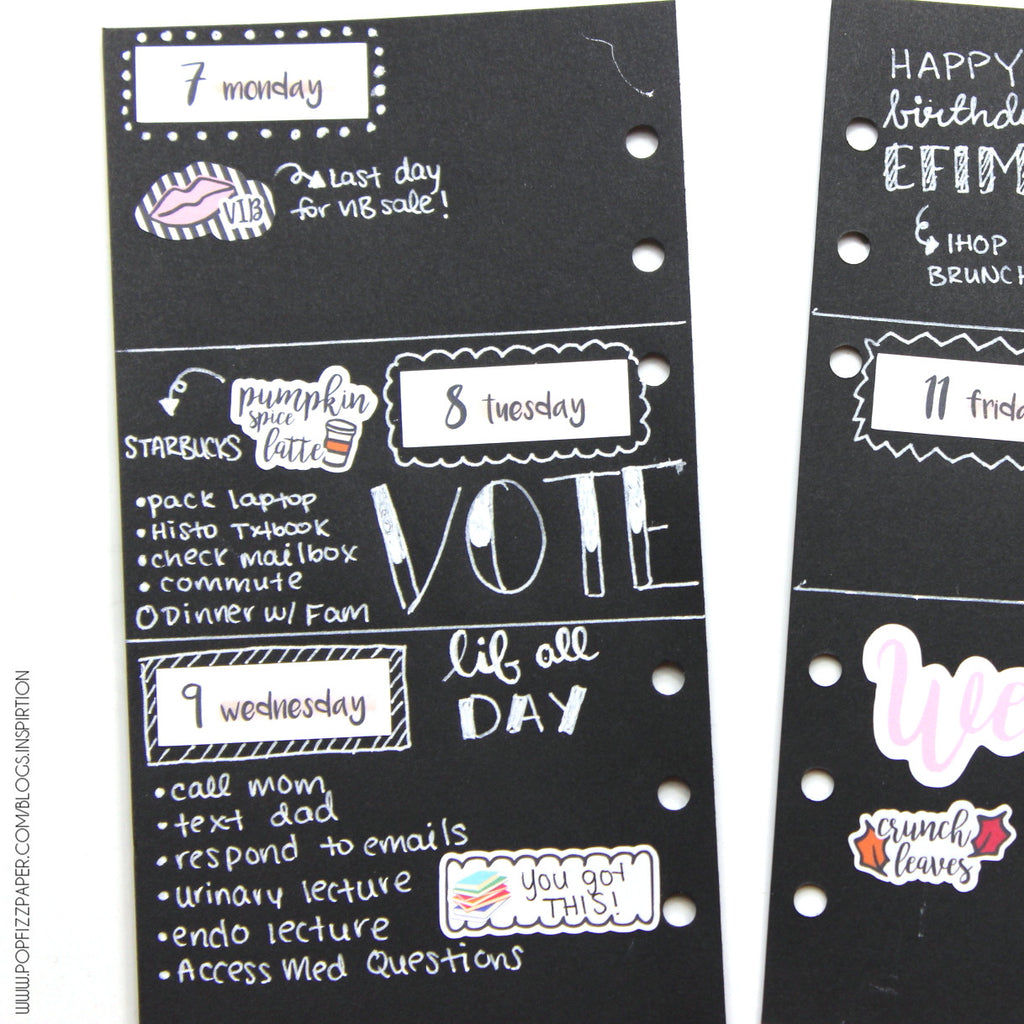 7 monday
VIB
Last day
for VIB sale!
pumpkin
spice
latte
STARBUCKS
8 tuesday
•pack laptop
•Histo Txtbook
•check mailbox
•commute
O Dinner w/ Fam
VOTE
9 wednesday
lib all
DAY
•call mom
•text dad
•respond to emails
•urinary lecture
•endo lecture
•Access Med Questions
you got
THIS!
HAPPY
birthd
EFIM
IHOP
BRUNCH
11 frida
We
crunch
leaves
WWW.POPFIZZPAPER.COM/BLOGS.INSPIRTION